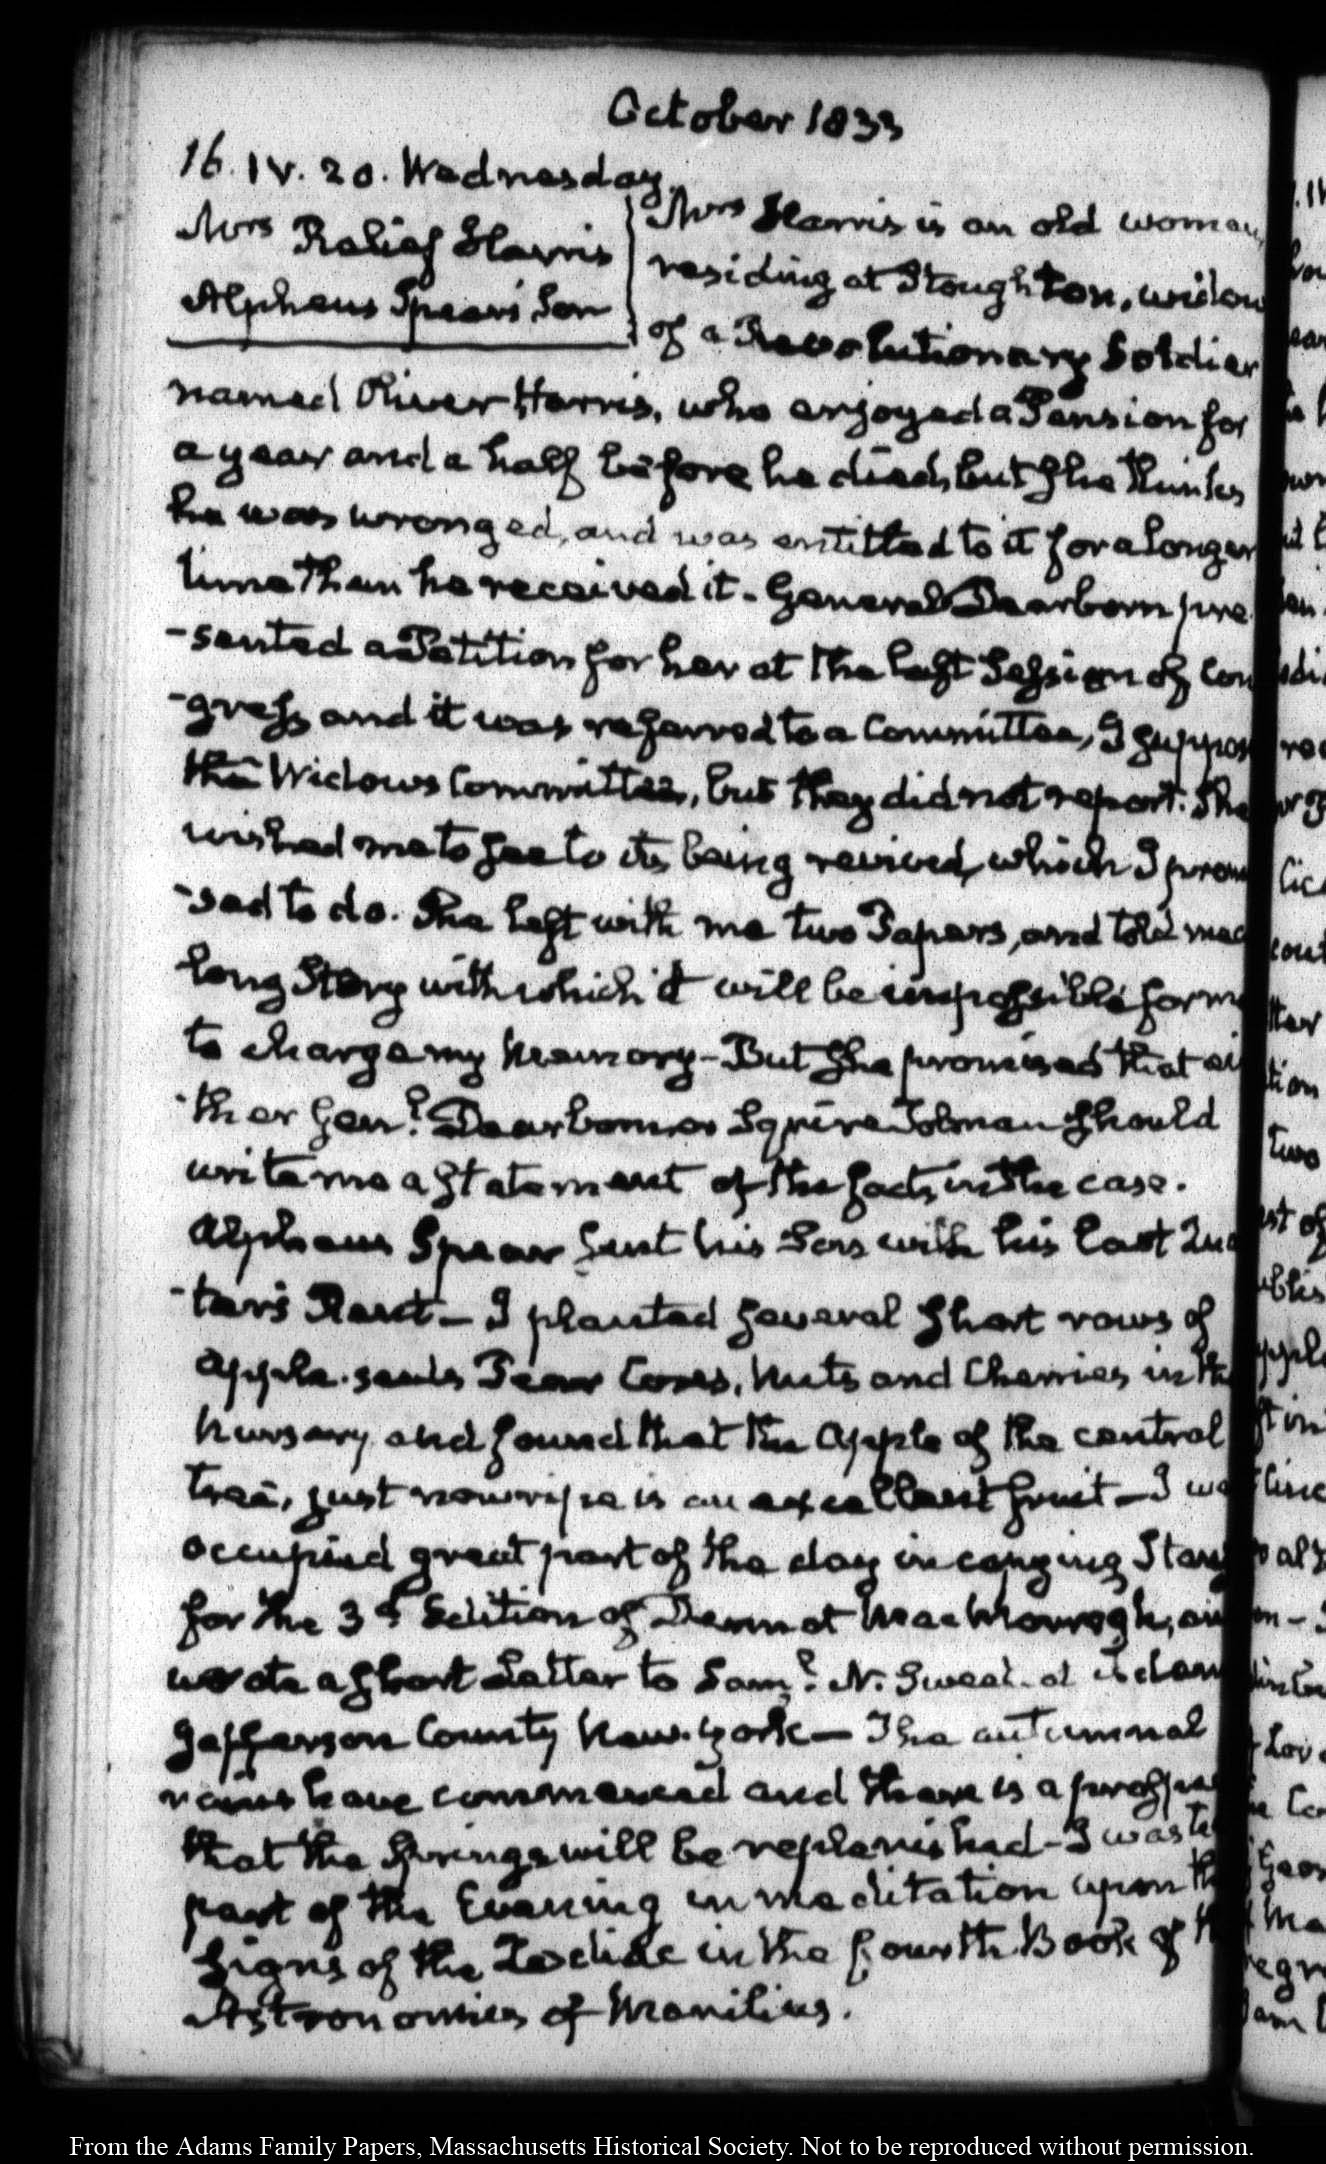 October 1833
16. IV. 20. Wednesday.
Mrs Relief Harris
Alpheus Spear's Son
Mrs Harris is an old woman
residing at Stoughton, widow
of a Revolutionary Soldier
named Oliver Harris, who enjoyed a Pension for
a year and a half before he died, but she thinks
he was wronged, and was entitled to it for a longer
time than he received it - General Dearborn pre
-sented a Petition for her at the last Session of Con
-gress and it was referred to a Committee, I suppose
the Widows Committee, but they did not report. She
wished me to see to its being revived, which I promi
-sed to do. She left with me two Papers, and told me a
long Story with which it will be impossible for me
to charge my Memory - But she promised that ei
-ther Genl. Dearborn, or Squire Tolman should
write me a statement of the facts in the case.
Alpheus Spear sent his Son with his last Qua
-ter's Rent - I planted several short rows of
apple-seeds Pear Cores, Nuts and Cherries in the
Nursery and found that the Apple of the central
tree, just now ripe is an excellent fruit - I was
occupied great part of the day in copying Stanz
for the 3d Edition of Dermot Mac Morrogh, and
wrote a short Letter to Saml. N. Sweet. at
Jefferson County New-York - The autumnal
rains have commenced and there is a prospect
that the Springs will be replenished - I wasted
part of the Evening in meditation upon the
Signs of the Zodiac in the fourth Book of the
Astronomics of Manilius.
From the Adams Family Papers, Massachusetts Historical Society. Not to be reproduced without permission.